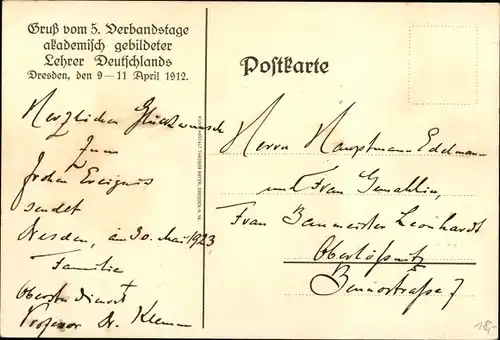 Gruß vom 5. Verbandstage
akademisch gebildeter
Lehrer Deutschlands
Dresden, den 9–11 April 1912.
Herzlichen Glückwunsch
zum
frohen Ereignis
sendet
Dresden, am 30. Mai 1923
Familie
Professor Dr. Klemm
Postkarte
Herrn Hauptmann Edelmann
und Frau Gemahlin,
Frau Baumeister Leonhardt
Oberlößnitz
Bennostraße 7
KUNSTANSTALT THEODOR BEYER, DRESDEN-A. 14.
18,-